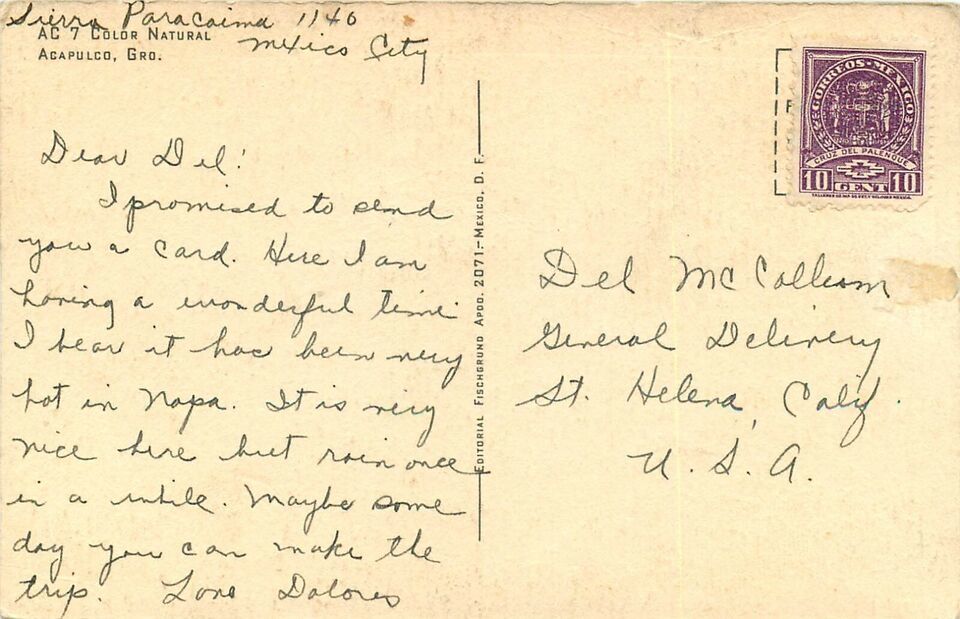 Sierra Paracaima 1140
Mexico City
AC 7 Color Natural
Acapulco, Gro.
Dear Del:
I promised to send
you a card. Here I am
having a wonderful time
I hear it has been very
hot in Napa. It is very
nice here but rain once
in a while. Maybe some
day you can make the
trip. Love Dolores
Editorial Fischgrund Apdo. 2071.- Mexico, D. F.
CORREOS·MEXICO
CRUZ DEL PALENQUE
10 CENT 10
Del McCollum
General Delivery
St. Helena, Calif.
U. S. A.